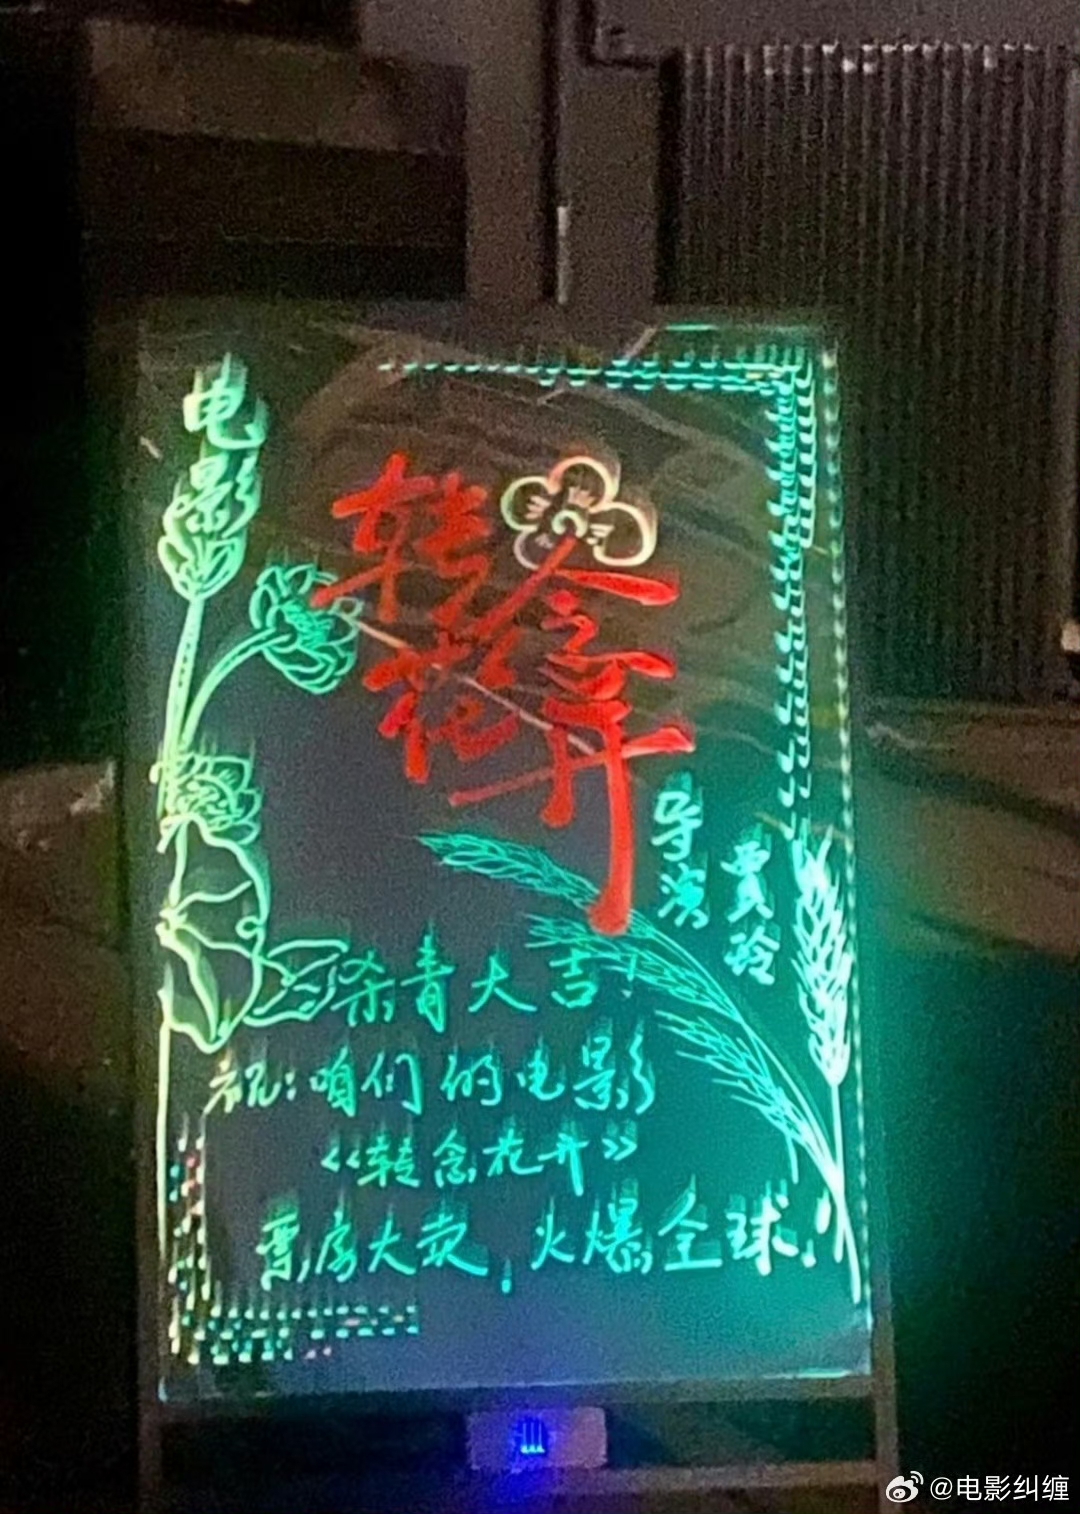 电影
转念
花开
导演
贾玲
杀青大吉!
祝:咱们的电影
《转念花开》
票房大卖,火爆全球!
@电影纠缠